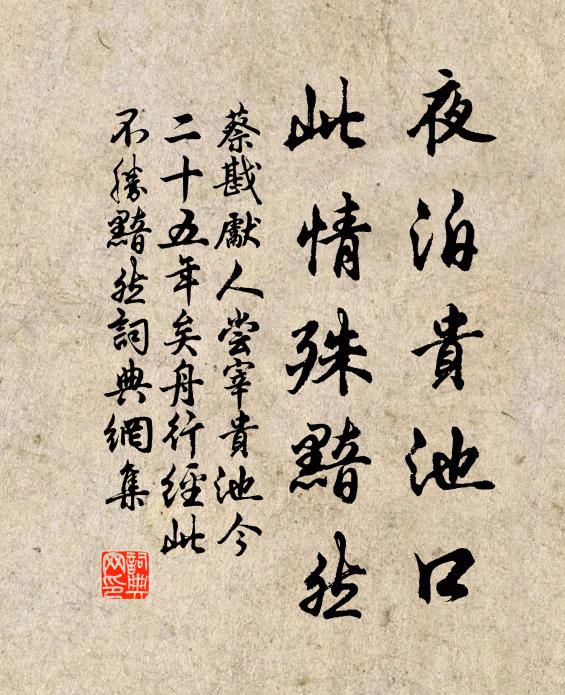 夜泊貴池口
此情殊黯然
蔡戡獻人嘗宰貴池今
二十五年矣舟行經此
不勝黯然詞典網集
詞典網印